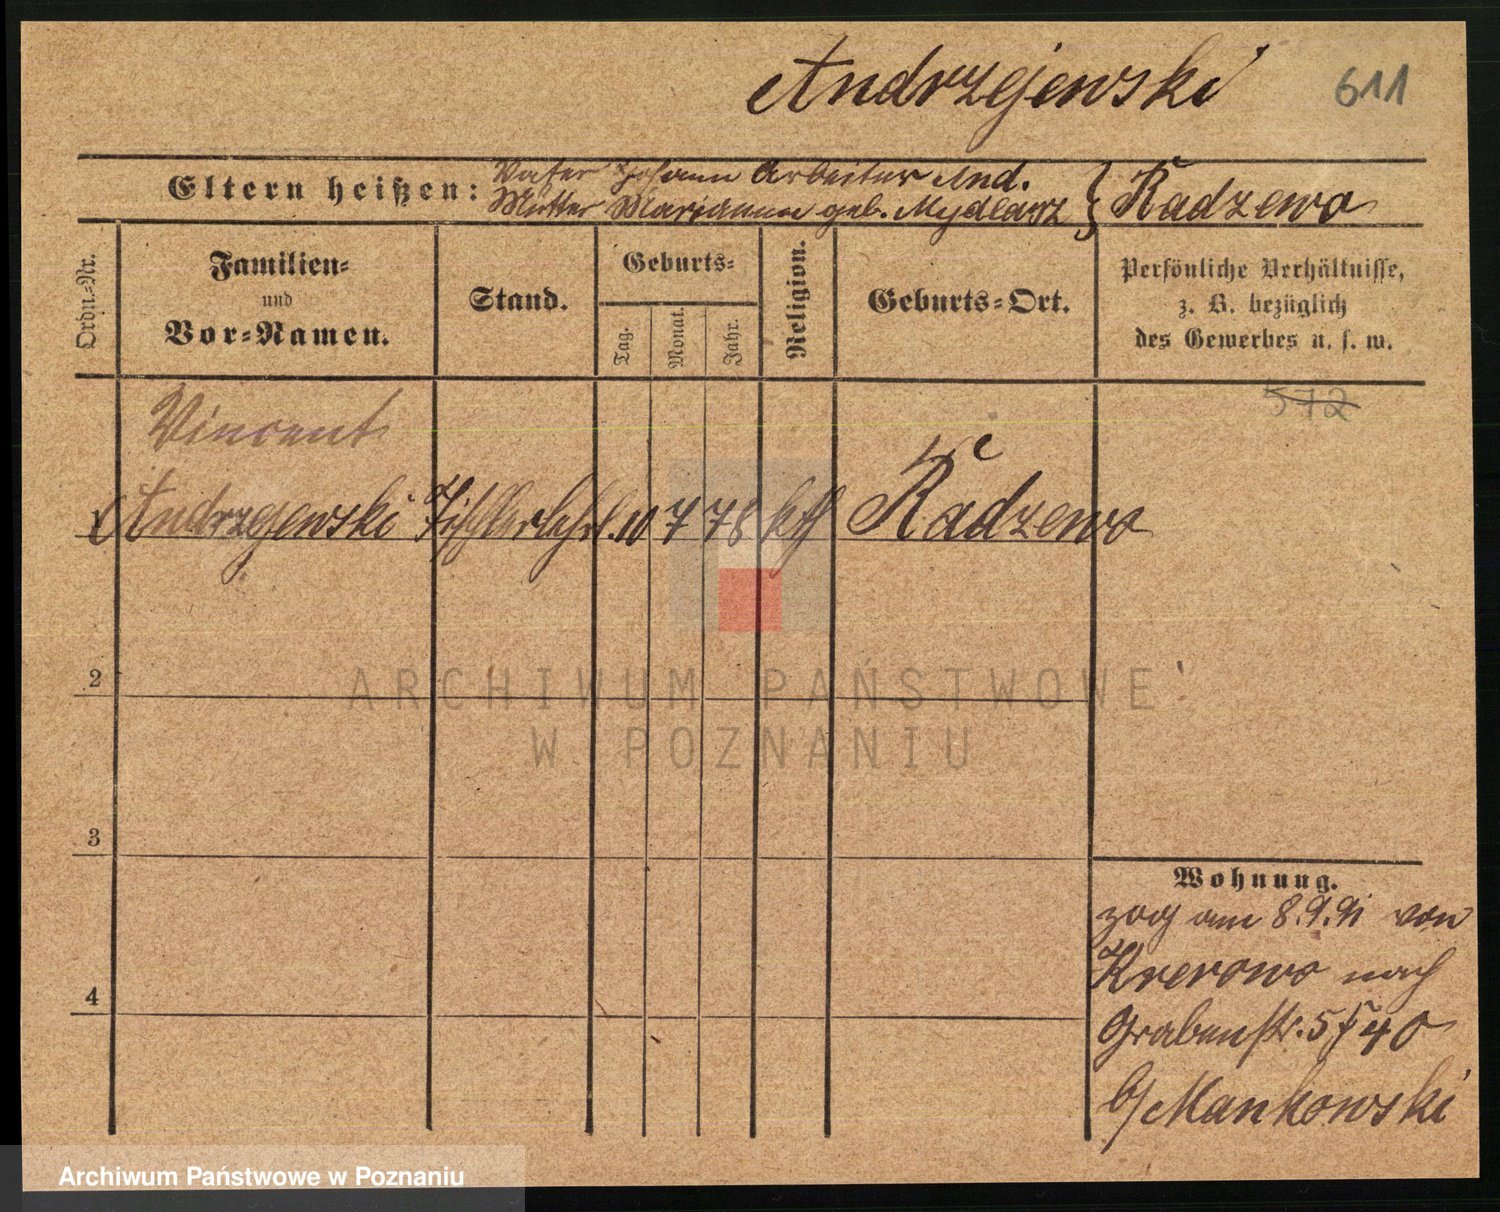 Andrzejewski 611
Eltern heißen: Vater Johann Arbeiter And.
Mutter Marianna geb. Mydlarz } Radzewo
Ordn.-Nr.
Familien-
und
Vor-Namen.
Stand.
Geburts-
Tag.
Monat.
Jahr.
Religion.
Geburts-Ort.
Persönliche Verhältnisse,
z. B. bezüglich
des Gewerbes u. s. w.
572
Vincent
1 Andrzejewski Tischlerlehrl. 10 7 78 kth Radzewo
2
3
4
Wohnung.
zog am 8.9.91 von
Krerowo nach
Grabenstr. 5
b/ Mankowski
ARCHIWUM PAŃSTWOWE
W POZNANIU
Archiwum Państwowe w Poznaniu